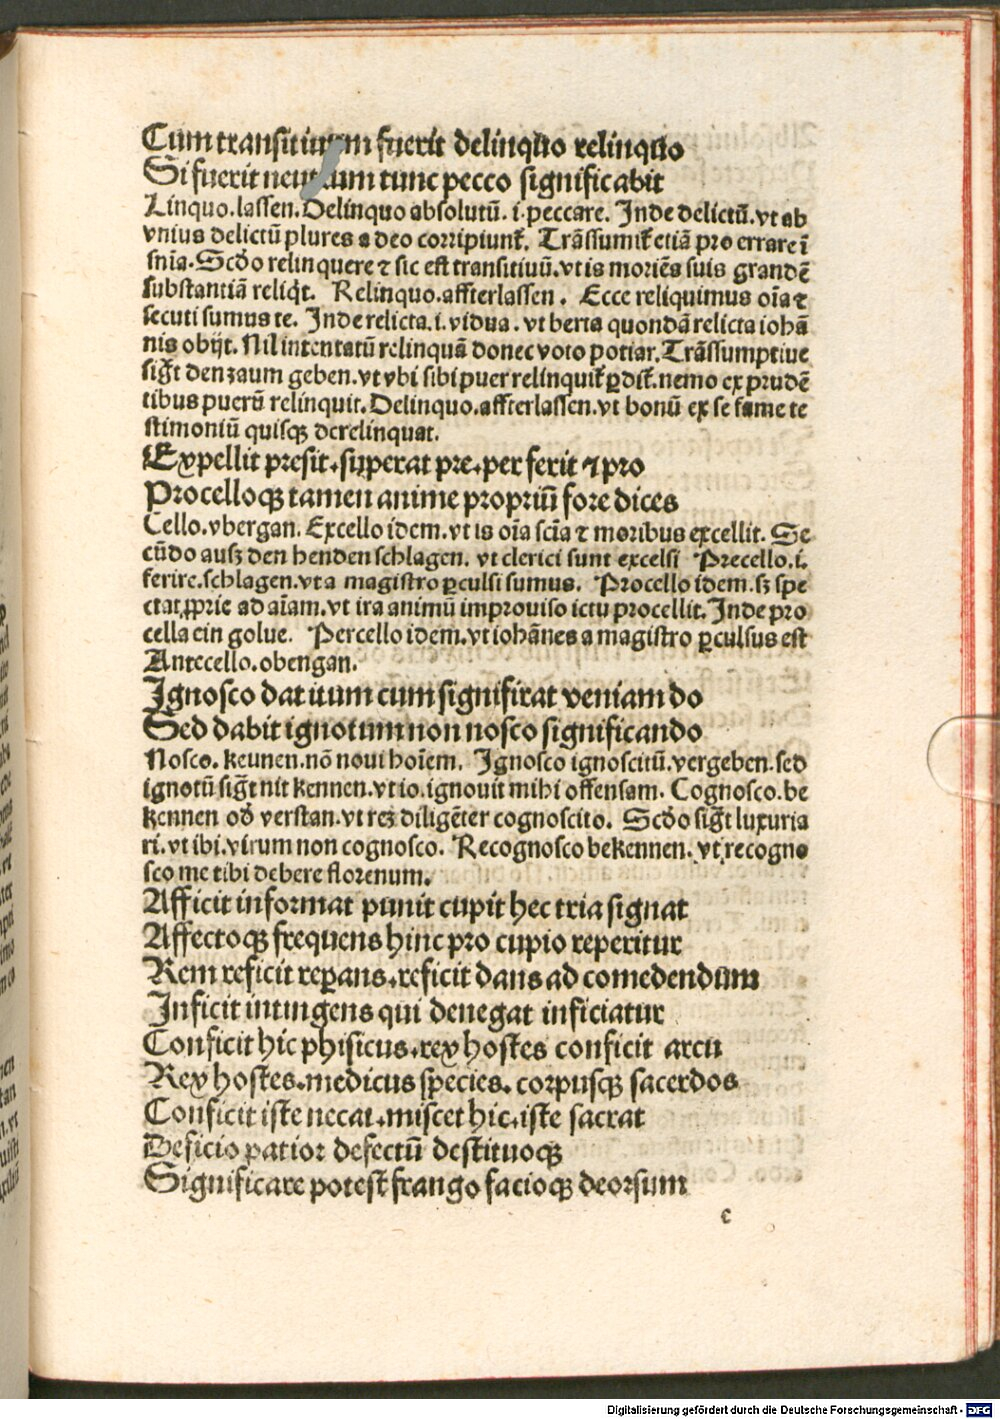 Cum transitiuum fuerit delinquo relinquo
Si fuerit neutrum tunc pecco significabit
Linquo.lassen. Delinquo absolutū. i. peccare. Inde delictū.vt ab
vnius delictū plures a deo corripiunt᷑. Trāssumit᷑ etiā pro errare ī
snīa. Scd̄o relinquere ⁊ sic est transitiuū.vt is moriēs suis grandē
substantiā reliq̇t. Relinquo.affterlassen. Ecce reliquimus oīa ⁊
secuti sumus te. Inde relicta.i.vidua.vt berta quondā relicta iohā
nis obijt. Nil intentatū relinquā donec voto potiar. Trāssumptiue
sigt̄ den zaum geben.vt vbi sibi puer relinquit᷑ ꝑdit᷑.nemo ex prudē
tibus puerū relinquit. Delinquo.affterlassen.vt bonū ex se fame te
stimoniū quisqꝫ derelinquat.
Expellit presit.superat pre.per ferit ⁊ pro
Procelloqꝫ tamen anime propriū fore dices
Cello.vbergan. Excello idem.vt is oīa scīa ⁊ moribus excellit. Se
cūdo ausz den henden schlagen. vt clerici sunt excelsi Precello.i.
ferire.schlagen.vt a magistro ꝑculsi sumus. Procello idem.sꝫ spe
ctat ꝓprie ad aīam.vt ira animū improuiso ictu procellit. Inde pro
cella ein golue. Percello idem.vt iohānes a magistro ꝑculsus est
Antecello.obengan.
Ignosco datiuum cum significat veniam do
Sed dabit ignotum non nosco significando
Nosco. keunen.nō noui hoīem. Ignosco ignoscitū.vergeben.sed
ignotū sigt̄ nit kennen.vt io.ignouit mihi offensam. Cognosco.be
kennen od̄ verstan.vt reꝫ diligēter cognoscito. Scd̄o sigt̄ luxuria
ri.vt ibi.virum non cognosco. Recognosco bekennen.vt recogno
sco me tibi debere florenum.
Afficit informat punit cupit hec tria signat
Affectoqꝫ frequens hinc pro cupio reperitur
Rem reficit reꝑans.reficit dans ad comedendum
Inficit intingens qui denegat inficiatur
Conficit hic phisicus.rex hostes conficit arcu
Rex hostes.medicus species.corpusqꝫ sacerdos
Conficit iste necat.miscet hic.iste sacrat
Deficio patior defectū destituoqꝫ
Significare potest frango facioqꝫ deorsum
c
Digitalisierung gefördert durch die Deutsche Forschungsgemeinschaft - DFG